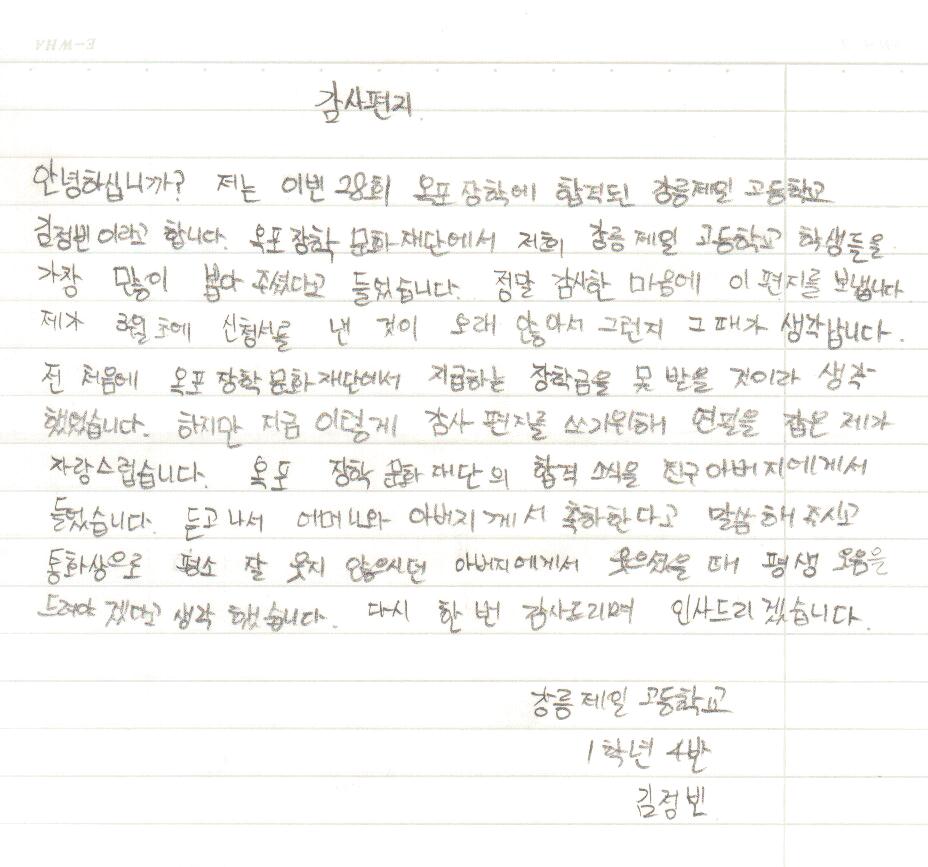 E-WHA
감사편지.
안녕하십니까? 저는 이번 28회 옥포 장학에 합격된 강릉제일 고등학교
김정빈이라고 합니다. 옥포 장학 문화 재단에서 저희 강릉 제일 고등학교 학생들을
가장 많이 뽑아 주셨다고 들었습니다. 정말 감사한 마음에 이 편지를 보냅니다
제가 3월 초에 신청서를 낸 것이 오래 않아서 그런지 그 때가 생각납니다.
전 처음에 옥포 장학 문화 재단에서 지급하는 장학금을 못 받을 것이라 생각
했었습니다. 하지만 지금 이렇게 감사 편지를 쓰기위해 연필을 잡은 제가
자랑스럽습니다. 옥포 장학 문화 재단의 합격 소식을 친구아버지에게서
들었습니다. 듣고 나서 어머니와 아버지께서 축하한다고 말씀해 주시고
통화상으로 평소 잘 웃지 않으시던 아버지에게서 웃으셨을 때 평생 웃음을
드려야 겠다고 생각 했습니다. 다시 한 번 감사드리며 인사드리겠습니다.
강릉 제일 고등학교
1학년 4반
김정빈